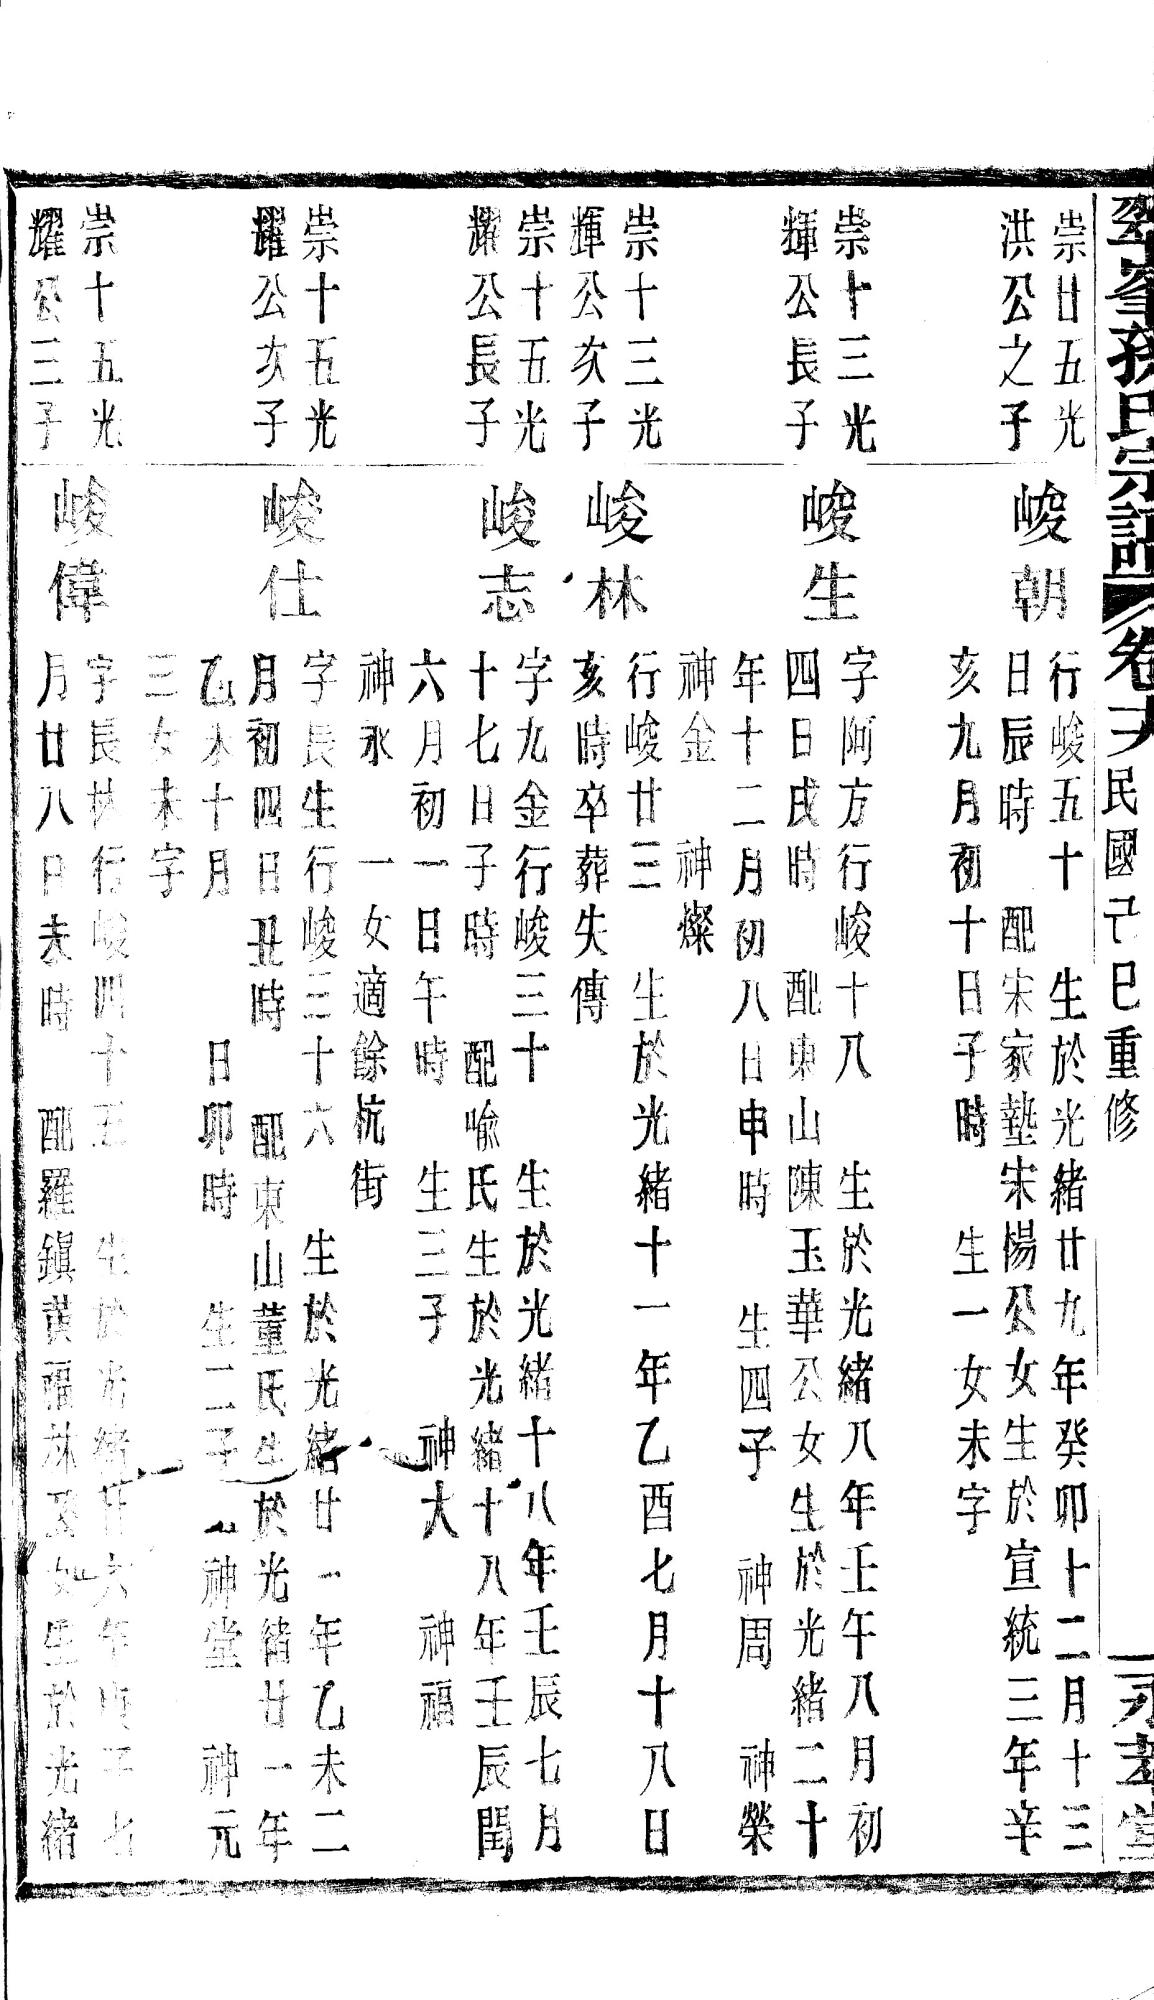 孫氏宗譜 卷 民國己巳重修
崇廿五光
洪公之子
峻朝
行峻五十 生於光緒廿九年癸卯十二月十三
日辰時 配宋家墊宋楊公女生於宣統三年辛
亥九月初十日子時 生一女未字
崇十三光
輝公長子
峻生
字阿方行峻十八 生於光緒八年壬午八月初
四日戌時 配東山陳玉華公女生於光緒二十
年十二月初八日申時 生四子 神周 神榮
神金 神燦
崇十三光
輝公次子
峻林
行峻廿三 生於光緒十一年乙酉七月十八日
亥時卒葬失傳
崇十五光
耀公長子
峻志
字九金行峻三十 生於光緒十八年壬辰七月
十七日子時 配喻氏生於光緒十八年壬辰閏
六月初一日午時 生三子 神大 神福
神永 一女適餘杭街
崇十五光
耀公次子
峻仕
字長生行峻三十六 生於光緒廿一年乙未二
月初四日丑時 配東山董氏生於光緒廿一年
乙未十月 日卯時 生二子 神堂 神元
三女未字
崇十五光
耀公三子
峻偉
字長林行峻四十五 生於光緒廿六年庚子七
月廿八日未時 配羅鎮黃福林公女生於光緒